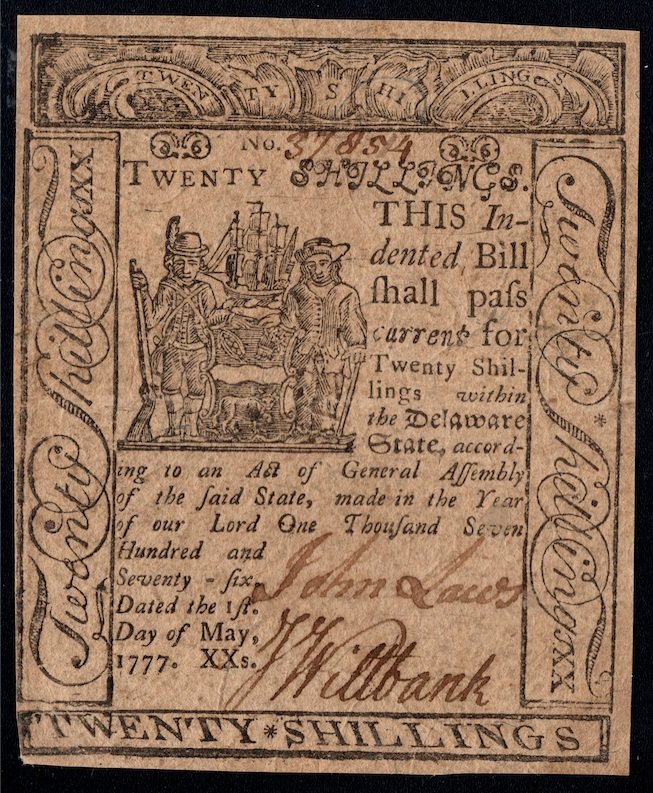 TWENTY SHILLINGS
No. 37854
TWENTY SHILLINGS.
THIS In-
dented Bill
ſhall paſs
current for
Twenty Shil-
lings within
the Delaware
State, accord-
ing to an Act of General Aſſembly
of the ſaid State, made in the Year
of our Lord One Thouſand Seven
Hundred and
Seventy-ſix.
Dated the 1ſt.
Day of May,
1777. XXs.
John Laws
J Wiltbank
Twenty ShillingsXX
Twenty ShillingsXX
TWENTY*SHILLINGS